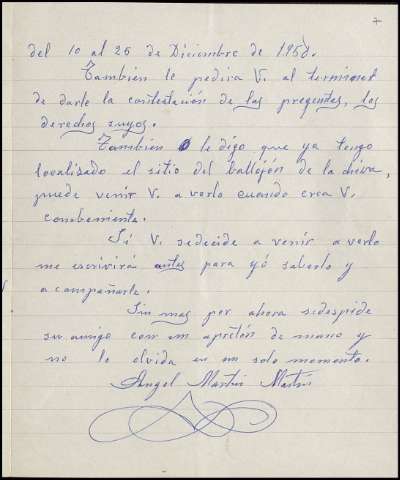 del 10 al 26 de Diciembre de 1958.
También le pedira V. al terminar
de darle la contestación de las pregentes, los
derechos suyos.
También le digo que ya tengo
localizado el sitio del ballejón de la
puede venir V. a verlo cuando crea V.
combeniente.
Si V. sedecide a venir a verlo
me escrivirá antes para yó saberlo y
acompañarle.
Sin mas por ahora sedespide
su amigo con un apretón de mano y
no lo olvida en un solo momento.
Angel Martin Martin